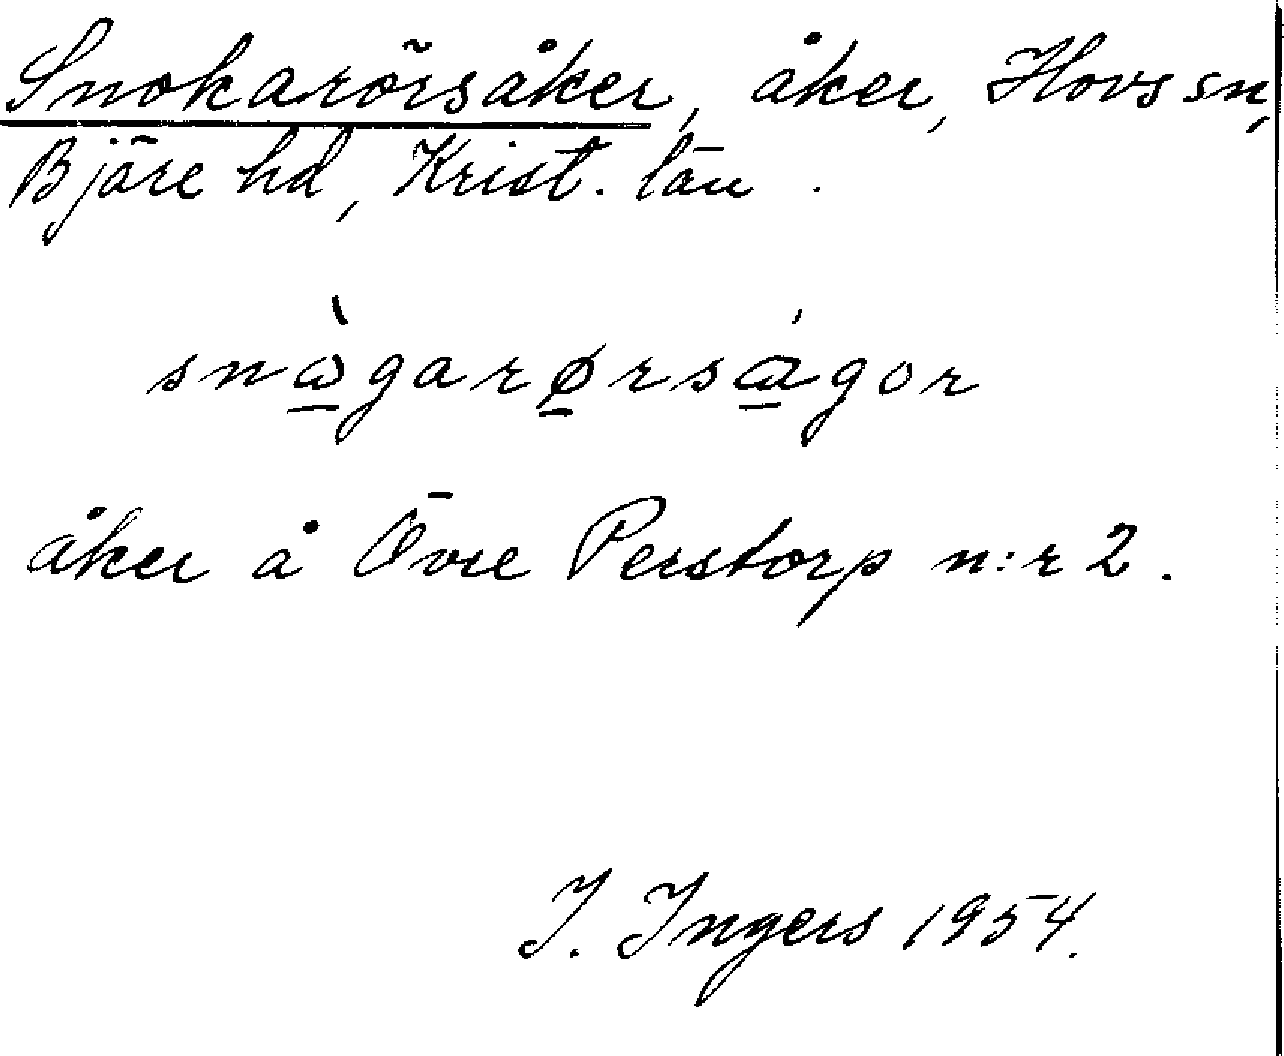 Snokarörsåker, åker, Hovs sn,
Bjäre hd, Krist. län.
snὼ̠garø̠rsǻ̠gor
åker å Övre Perstorp n:r 2.
I. Ingers 1954.